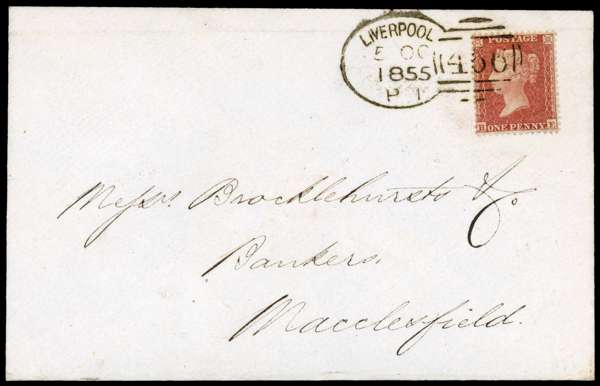 LIVERPOOL
5 OC
1855
P 1
466
POSTAGE
ONE PENNY
Messrs. Brocklehursts & Co.
Bankers,
Macclesfield.